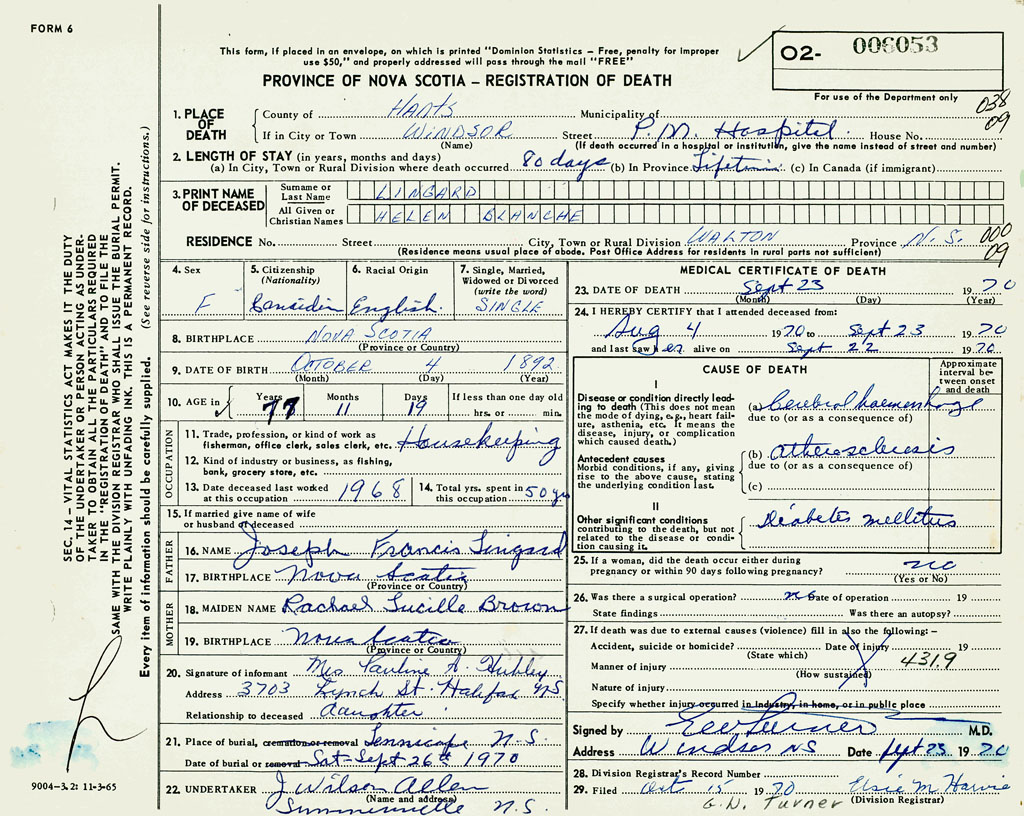 FORM 6
This form, if placed in an envelope, on which is printed "Dominion Statistics – Free, penalty for improper
use $50," and properly addressed will pass through the mail "FREE"
PROVINCE OF NOVA SCOTIA – REGISTRATION OF DEATH
02- 006053
For use of the Department only
038
09
1. PLACE OF DEATH
County of HANTS Municipality of
If in City or Town WINDSOR Street P.M. Hospital. House No.
(Name) (If death occurred in a hospital or institution, give the name instead of street and number)
2. LENGTH OF STAY (in years, months and days)
(a) In City, Town or Rural Division where death occurred 80 days (b) In Province Lifetime (c) In Canada (if immigrant)
3. PRINT NAME OF DECEASED
Surname or Last Name LINGARD
All Given or Christian Names HELEN BLANCHE
RESIDENCE No. Street City, Town or Rural Division WALTON Province N.S.
000
09
(Residence means usual place of abode. Post Office Address for residents in rural parts not sufficient)
4. Sex F
5. Citizenship (Nationality) Canadian
6. Racial Origin English.
7. Single, Married, Widowed or Divorced (write the word) SINGLE
8. BIRTHPLACE NOVA SCOTIA
(Province or Country)
9. DATE OF BIRTH OCTOBER 4 1892
(Month) (Day) (Year)
10. AGE in Years 77 Months 11 Days 19 If less than one day old hrs. or min.
OCCUPATION
11. Trade, profession, or kind of work as fisherman, office clerk, sales clerk, etc. Housekeeping
12. Kind of industry or business, as fishing, bank, grocery store, etc.
13. Date deceased last worked at this occupation 1968
14. Total yrs. spent in this occupation 50 yrs
15. If married give name of wife or husband of deceased
FATHER
16. NAME Joseph Francis Lingard
17. BIRTHPLACE Nova Scotia
(Province or Country)
MOTHER
18. MAIDEN NAME Rachael Lucille Brown
19. BIRTHPLACE Nova Scotia
(Province or Country)
20. Signature of informant Mrs Pauline A. Hubley
Address 3703 Lynch St. Halifax NS
Relationship to deceased daughter
21. Place of burial, cremation or removal Tennicape N.S.
Date of burial or removal Sat Sept 26th 1970
22. UNDERTAKER J Wilson Allen
(Name and address)
Summerville N.S.
MEDICAL CERTIFICATE OF DEATH
23. DATE OF DEATH Sept 23 1970
(Month) (Day) (Year)
24. I HEREBY CERTIFY that I attended deceased from:
Aug 4 1970 to Sept 23 1970
and last saw her alive on Sept 22 1970
CAUSE OF DEATH
Approximate interval between onset and death
I
Disease or condition directly leading to death (This does not mean the mode of dying, e.g., heart failure, asthenia, etc. It means the disease, injury, or complication which caused death.)
(a) Cerebral haemorrhage
due to (or as a consequence of)
Antecedent causes
Morbid conditions, if any, giving rise to the above cause, stating the underlying condition last.
(b) atherosclerosis
due to (or as a consequence of)
(c)
II
Other significant conditions contributing to the death, but not related to the disease or condition causing it.
Diabetes mellitus
25. If a woman, did the death occur either during pregnancy or within 90 days following pregnancy? no
(Yes or No)
26. Was there a surgical operation? no Date of operation 19
State findings Was there an autopsy?
27. If death was due to external causes (violence) fill in also the following: –
Accident, suicide or homicide? Date of injury 19
(State which)
Manner of injury 431.9
(How sustained)
Nature of injury
Specify whether injury occurred in industry, in home, or in public place
Signed by M.D.
Address Windsor NS Date Sept 23 1970
28. Division Registrar's Record Number
29. Filed Oct 15 1970 Elsie M Harvie
(Division Registrar)
G.N. Turner
SEC. 14 – VITAL STATISTICS ACT MAKES IT THE DUTY
OF THE UNDERTAKER OR PERSON ACTING AS UNDER-
TAKER TO OBTAIN ALL THE PARTICULARS REQUIRED
IN THE "REGISTRATION OF DEATH" AND TO FILE THE
SAME WITH THE DIVISION REGISTRAR WHO SHALL ISSUE THE BURIAL PERMIT.
WRITE PLAINLY WITH UNFADING INK. THIS IS A PERMANENT RECORD.
Every item of information should be carefully supplied. (See reverse side for instructions.)
9004-3.2: 11-3-65